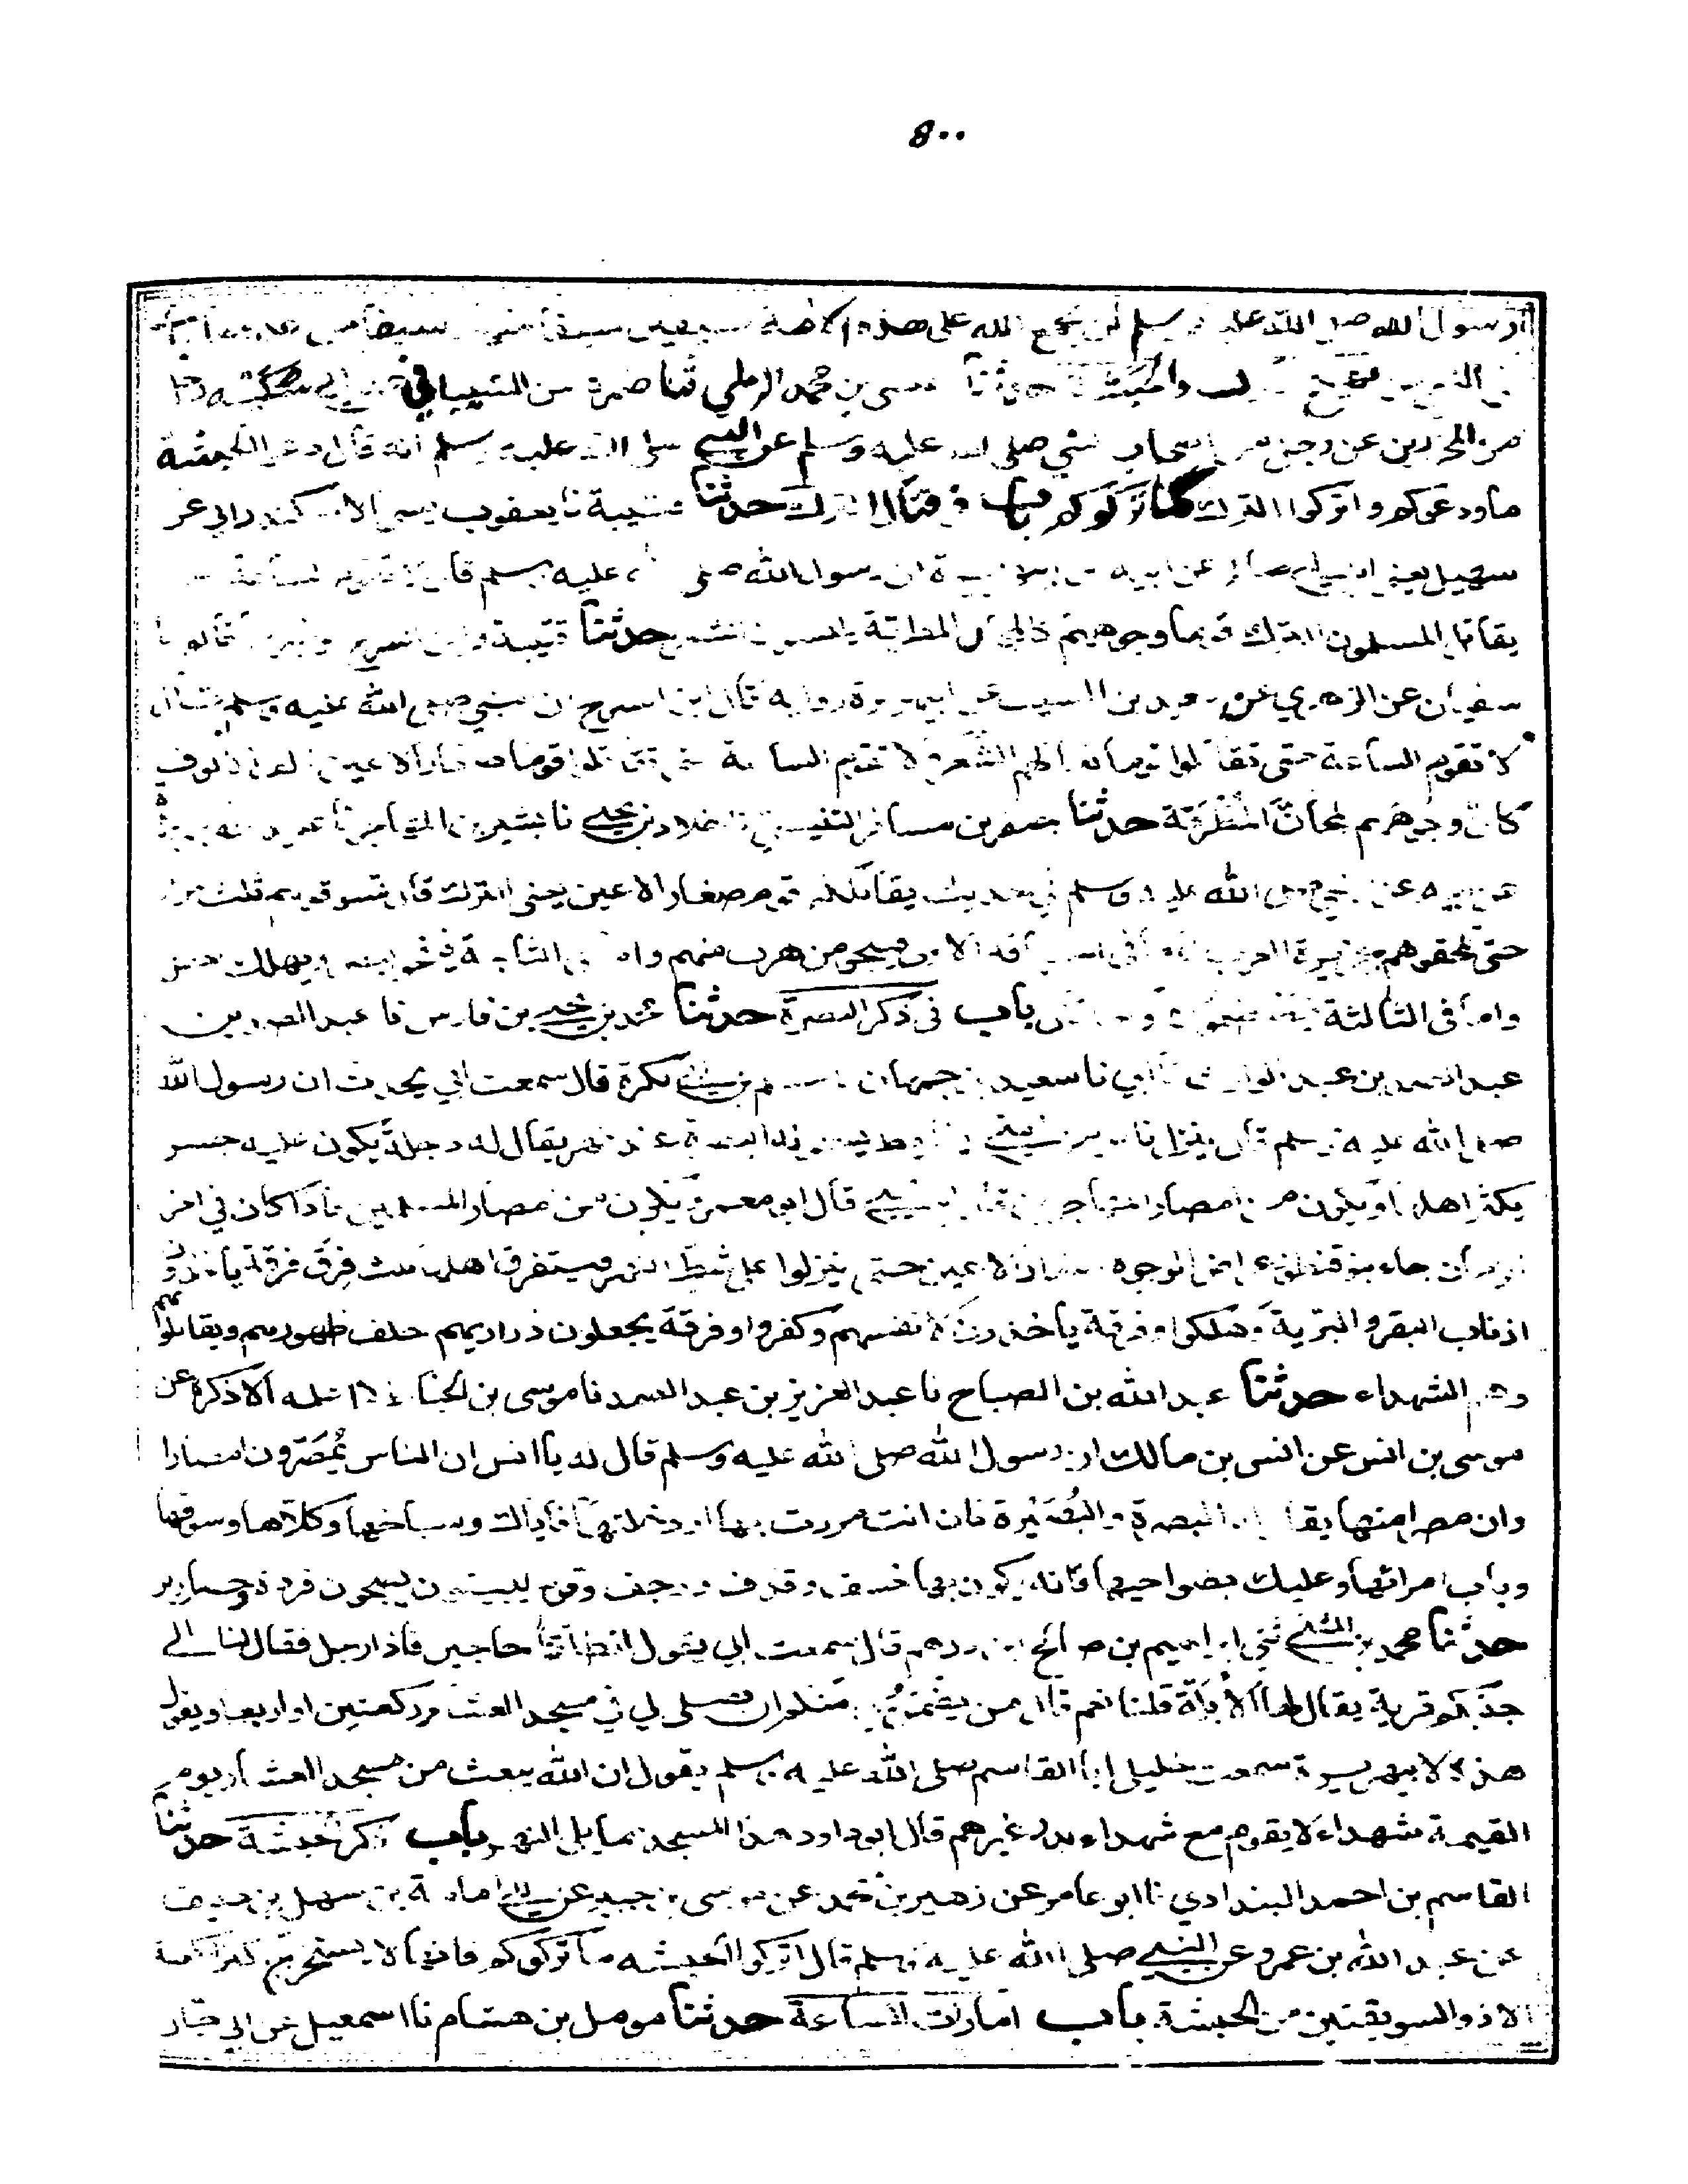 ٥٠٠
رسول الله صلى الله عليه وسلم لن يجمع الله على هذه الامة سيفين سيفا منها وسيفا من عدوها
والحبشة حدثنا عيسى بن محمد الرملي ثنا ضمرة عن السيباني عن ابي سكينة
من المحررين عن رجل من اصحاب النبي صلى الله عليه وسلم عن النبي صلى الله عليه وسلم انه قال دعوا الحبشة
ما ودعوكم واتركوا الترك ما تركوكم باب في قتال الترك حدثنا قتيبة نا يعقوب يعني الاسكندراني عن
سهيل يعني ابن ابي صالح عن ابيه عن ابي هريرة ان رسول الله صلى الله عليه وسلم قال لا تقوم الساعة
يقاتل المسلمون الترك قوما وجوههم كالمجان المطرقة يلبسون الشعر حدثنا قتيبة وابن السرح وغيرهما قالوا نا
سفيان عن الزهري عن سعيد بن المسيب عن ابي هريرة رواية قال ابن السرح ان النبي صلى الله عليه وسلم قال
لا تقوم الساعة حتى تقاتلوا قوما نعالهم الشعر ولا تقوم الساعة حتى تقاتلوا قوما صغار الاعين ذلف
كان وجوههم المجان المطرقة حدثنا جعفر بن مسافر التنيسي نا خلاد بن يحيى نا بشير بن المهاجر نا عبد الله بن بريدة
عن ابيه عن النبي صلى الله عليه وسلم في حديث يقاتلكم قوم صغار الاعين يعني الترك قال تسوقونهم ثلث مرار
حتى تلحقوهم بجزيرة العرب فاما في السياقة الاولى فينجو من هرب منهم واما في الثانية فينجو بعض ويهلك بعض
واما في الثالثة فيصطلمون او كما قال باب في ذكر البصرة حدثنا محمد بن يحيى بن فارس نا عبد الصمد بن
عبد الصمد بن عبد الوارث نا ابي نا سعيد بن جمهان نا مسلم بن ابي بكرة قال سمعت ابي يحدث ان رسول الله
صلى الله عليه وسلم قال ينزل ناس من امتي بغائط يسمونه البصرة عند نهر يقال له دجلة يكون عليه جسر
يكثر اهلها ويكون من امصار المهاجرين قال ابن يحيى قال ابو معمر ويكون من امصار المسلمين فاذا كان في اخر
الزمان جاء بنو قنطوراء عراض الوجوه صغار الاعين حتى ينزلوا على شط النهر فيتفرق اهلها ثلث فرق فرقة ياخذون
اذناب البقر والبرية وهلكوا وفرقة ياخذون لانفسهم وكفروا وفرقة يجعلون ذراريهم خلف ظهورهم ويقاتلونهم
وهم الشهداء حدثنا عبد الله بن الصباح نا عبد العزيز بن عبد الصمد نا موسى الحناط لا اعلمه الا ذكره عن
موسى بن انس عن انس بن مالك ان رسول الله صلى الله عليه وسلم قال له يا انس ان الناس يمصرون امصارا
وان مصرا منها يقال له البصرة والبصيرة فان انت مررت بها او دخلتها فاياك وسباخها وكلاءها وسوقها
وباب امرائها وعليك بضواحيها فانه يكون بها خسف وقذف ورجف وقوم يبيتون يصبحون قردة وخنازير
حدثنا محمد بن المثنى ثني ابراهيم بن صالح بن درهم قال سمعت ابي يقول انطلقنا حاجين فاذا رجل فقال لنا الى
جنبكم قرية يقال لها الابلة قلنا نعم قال من يضمن لي منكم ان يصلي لي في مسجد العشار ركعتين او اربعا ويقول
هذه لابي هريرة سمعت خليلي ابا القاسم صلى الله عليه وسلم يقول ان الله يبعث من مسجد العشار يوم
القيمة شهداء لا يقوم مع شهداء بدر غيرهم قال ابو داود هذا المسجد مما يلي النهر باب ذكر الحبشة حدثنا
القاسم بن احمد البغدادي نا ابو عامر عن زهير بن محمد عن موسى بن جبير عن ابي امامة بن سهل بن حنيف
عن عبد الله بن عمرو عن النبي صلى الله عليه وسلم قال اتركوا الحبشة ما تركوكم فانه لا يستخرج كنز الكعبة
الا ذو السويقتين من الحبشة باب امارات الساعة حدثنا مومل بن هشام نا اسمعيل عن ابي حيان